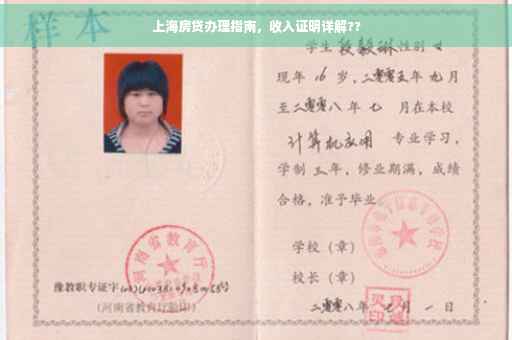 上海房贷办理指南，收入证明详解??
样本
学生 段毅琳 性别 女
现年 16 岁，二零零五年 九 月
至二零零八年 七 月在本校
计算机应用 专业学习，
学制 三 年，修业期满，成绩
合格，准予毕业。
学校（章）
校长（章）
二零零八年 七 月 一 日
河南省教育厅
豫教职专证字
(河南省教育厅验印)